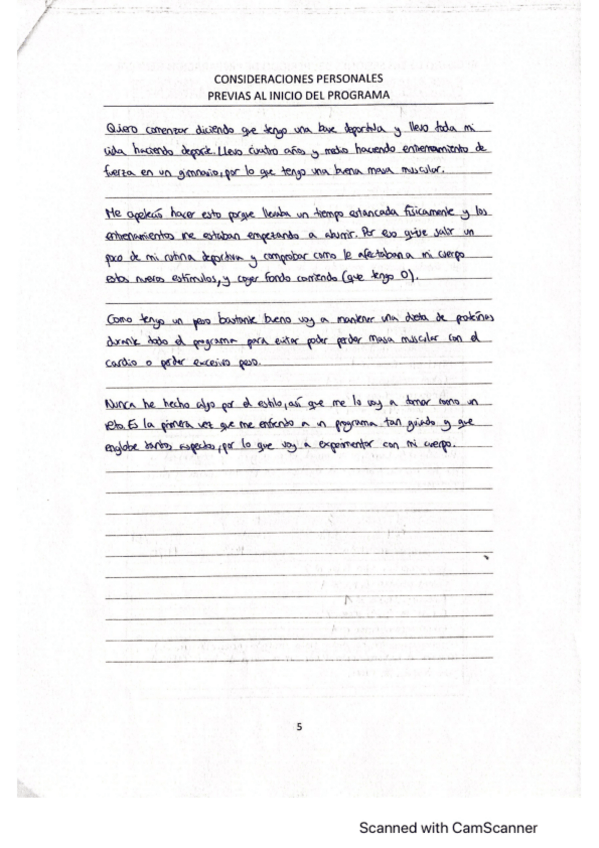 CONSIDERACIONES PERSONALES
PREVIAS AL INICIO DEL PROGRAMA
Quiero comenzar diciendo que tengo una base deportiva y llevo toda mi
vida haciendo deporte. Llevo cuatro años y medio haciendo entrenamiento de
fuerza en un gimnasio, por lo que tengo una buena masa muscular.
Me apetecía hacer esto porque llevaba un tiempo estancada físicamente y los
entrenamientos me estaban empezando a aburrir. Por eso quise salir un
poco de mi rutina deportiva y comprobar como le afectaban a mi cuerpo
estos nuevos estímulos, y coger fondo corriendo (que tengo 0).
Como tengo un peso bastante bueno voy a mantener una dieta de proteínas
durante todo el programa para evitar poder perder masa muscular con el
cardio o perder excesivo peso.
Nunca he hecho algo por el estilo, así que me lo voy a tomar como un
reto. Es la primera vez que me enfrento a un programa tan guiado y que
englobe tantos aspectos, por lo que voy a experimentar con mi cuerpo.
5
Scanned with CamScanner